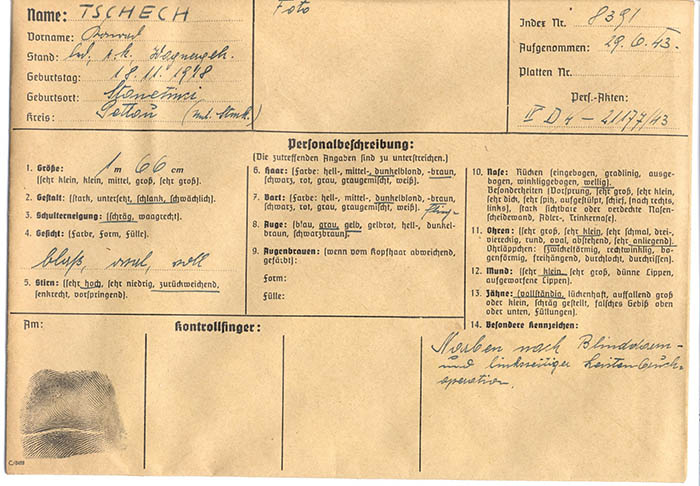 Name: TSCHECH
Vorname: Konrad
Stand: led, r.k. Wagnergeh.
Geburtstag: 18.11.1918
Geburtsort:
Kreis: (Unt. Stmk.)
Foto
Index Nr. 8391
Aufgenommen: 29.6.43.
Platten Nr.
Pers.-Akten:
IV D 4 - 21177/43
Personalbeschreibung:
(Die zutreffenden Angaben sind zu unterstreichen.)
1. Größe: 1 m 66 cm
(sehr klein, klein, mittel, groß, sehr groß).
2. Gestalt: (stark, untersetzt, schlank, schwächlich).
3. Schulterneigung: (schräg, waagrecht).
4. Gesicht: (Farbe, Form, Fülle).
blaß, oval, voll
5. Stirn: (sehr hoch, sehr niedrig, zurückweichend,
senkrecht, vorspringend).
6. Haar: (Farbe: hell-, mittel-, dunkelblond, -braun,
schwarz, rot, grau, graugemischt, weiß).
7. Bart: (Farbe: hell-, mittel-, dunkelblond, -braun,
schwarz, rot, grau, graugemischt, weiß).
8. Auge: (blau, grau, gelb, gelbrot, hell-, dunkel-
braun, schwarzbraun).
9. Augenbrauen: (wenn vom Kopfhaar abweichend,
gefärbt):
Form:
Fülle:
10. Nase: Rücken (eingebogen, gradlinig, ausge-
bogen, winkliggebogen, wellig).
Besonderheiten (Vorsprung, sehr groß, sehr klein,
sehr dick, sehr spitz, aufgestülpt, schief, (nach rechts,
links), stark sichtbare oder verdeckte Nasen-
scheidewand, Adler-, Trinkernase).
11. Ohren: (sehr groß, sehr klein, sehr schmal, drei-
viereckig, rund, oval, abstehend, sehr anliegend).
Ohrläppchen: (zwickelförmig, rechtwinklig, bo-
genförmig, freihängend, durchlocht, durchrissen).
12. Mund: (sehr klein, sehr groß, dünne Lippen,
aufgeworfene Lippen).
13. Zähne: (vollständig, lückenhaft, auffallend groß
oder klein, schräg gestellt, falsches Gebiß oben
oder unten, Füllungen).
14. Besondere Kennzeichen:
Narben nach Blinddarm-
und linksseitiger Leistenbruch-
operation.
Am:
Kontrollfinger: